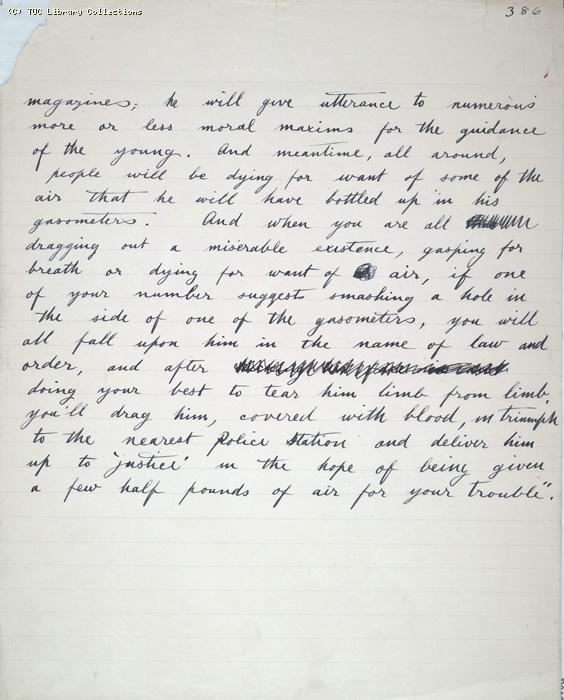 (C) TUC Library Collections
386
magazines; he will give utterance to numerous
more or less moral maxims for the guidance
of the young. And meantime, all around,
people will be dying for want of some of the
air that he will have bottled up in his
gasometers. And when you are all
dragging out a miserable existence, gasping for
breath or dying for want of air, if one
of your number suggests smashing a hole in
the side of one of the gasometers, you will
all fall upon him in the name of law and
order, and after
doing your best to tear him limb from limb,
you'll drag him, covered with blood, in triumph
to the nearest Police Station and deliver him
up to 'justice' in the hope of being given
a few half pounds of air for your trouble".